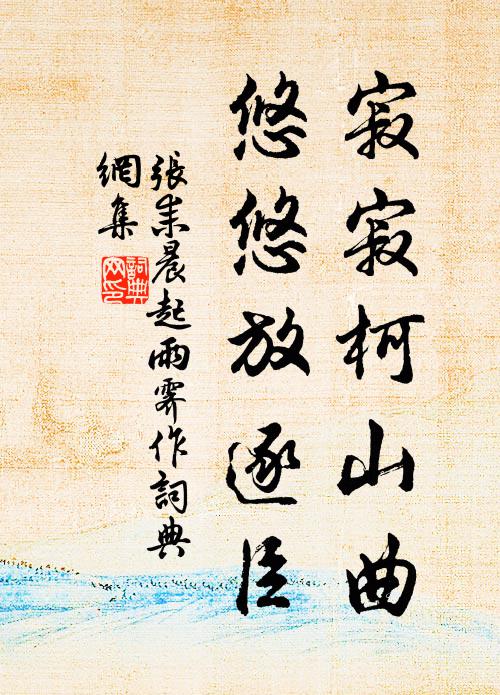 寂寂柯山曲
悠悠放逐臣
張耒晨起雨霽作詞典
網集
詞典網印